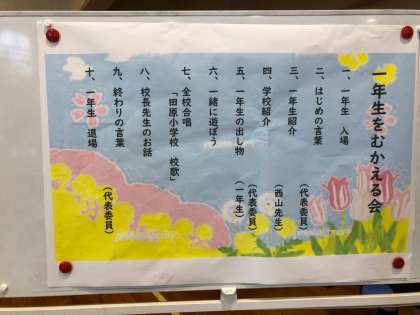 一年生をむかえる会
一、一年生　入場
二、はじめの言葉　（代表委員）
三、一年生紹介　（西山先生）
四、学校紹介　（代表委員）
五、一年生の出し物　（一年生）
六、一緒に遊ぼう
七、全校合唱
「田原小学校　校歌」
八、校長先生のお話
九、終わりの言葉　（代表委員）
十、一年生　退場